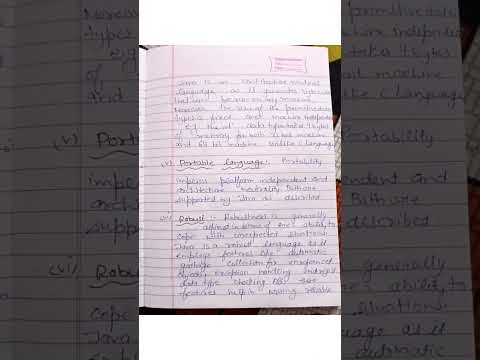 Java is an architecture neutral
language as it generates bytecode
that can on any machine.
Moreover the size of the primitive data
types is fixed and machine independent
Eg the int data type takes 4 bytes
of memory for both 32 bit machine
and 64 bit machine unlike C language
(v) Portable language:- Portability
implies platform independent and
architecture neutrality Both are
supported by Java as described
(vi) Robust :- Robustness is generally
defined in terms of one's ability to
cope with unexpected situations
Java is a robust language as it
employs features like automatic
garbage collection for
memory exception handling and
data type checking
features help in making reliable